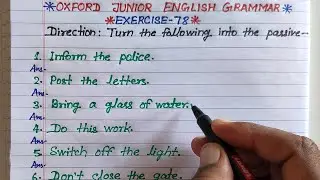 *OXFORD JUNIOR ENGLISH GRAMMAR*
*EXERCISE-78*
Direction: Turn the following into the passive-
1. Inform the police.
Ans-
2. Post the letters.
Ans-
3. Bring a glass of water.
Ans-
4. Do this work.
Ans-
5. Switch off the light.
Ans-
6. Don't close the gate.